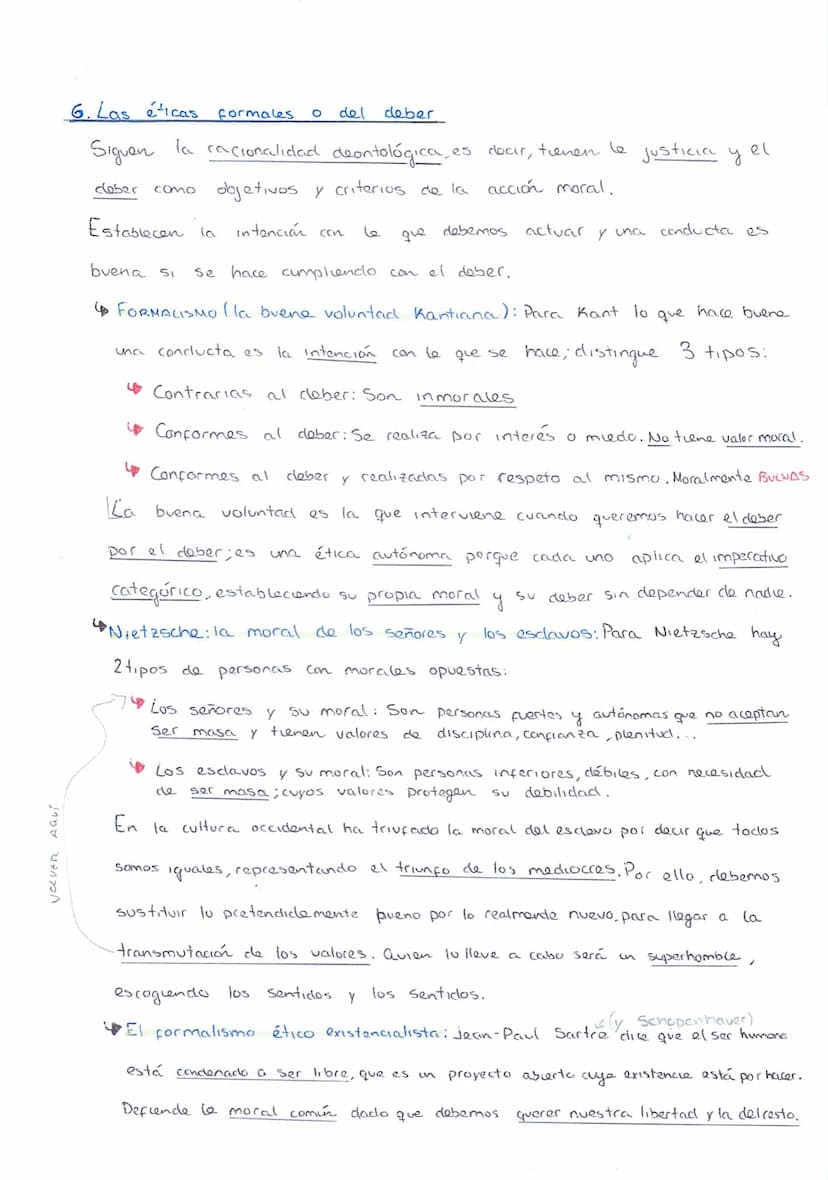 6. Las éticas formales o del deber
Siguen la racionalidad deontológica, es decir, tienen la justicia y el
deber como objetivos y criterios de la acción moral.
Establecen la intención con la que debemos actuar y una conducta es
buena si se hace cumpliendo con el deber.
↳ FORMALISMO (la buena voluntad Kantiana): Para Kant lo que hace buena
una conducta es la intención con la que se hace; distingue 3 tipos:
↳ Contrarias al deber: Son inmorales
↳ Conformes al deber: Se realiza por interés o miedo. No tiene valor moral.
↳ Conformes al deber y realizadas por respeto al mismo. Moralmente BUENAS
La buena voluntad es la que interviene cuando queremos hacer el deber
por el deber; es una ética autónoma porque cada uno aplica el imperativo
categórico, estableciendo su propia moral y su deber sin depender de nadie.
↳ Nietzsche: la moral de los señores y los esclavos: Para Nietzsche hay
2 tipos de personas con morales opuestas:
↳ Los señores y su moral: Son personas fuertes y autónomas que no aceptan
ser masa y tienen valores de disciplina, confianza, plenitud...
↳ Los esclavos y su moral: Son personas inferiores, débiles, con necesidad
de ser masa; cuyos valores protegen su debilidad.
En la cultura occidental ha triunfado la moral del esclavo por decir que todos
somos iguales, representando el triunfo de los mediocres. Por ello, debemos
sustituir lo pretendidamente bueno por lo realmente nuevo, para llegar a la
transmutación de los valores. Quien lo lleve a cabo será un superhombre,
escogiendo los sentidos y los sentidos.
VUELVEN AQUÍ
↳ El formalismo ético existencialista: Jean-Paul Sartre (y Schopenhauer) dice que el ser humano
está condenado a ser libre, que es un proyecto abierto cuya existencia está por hacer.
Defiende la moral común dado que debemos querer nuestra libertad y la del resto.